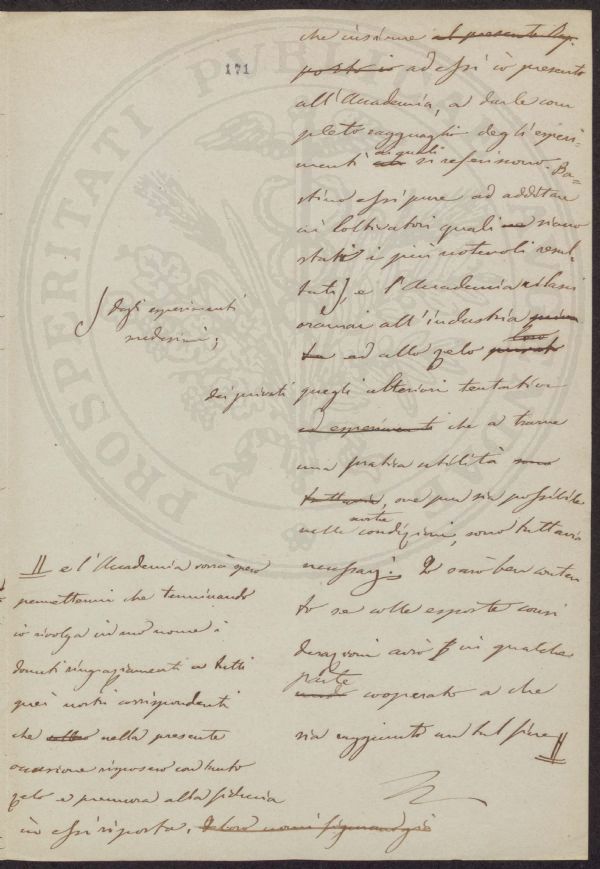 171
che insieme al presente Rap-
porto io ad essi io presento
all'Accademia, a darle com
pleto ragguaglio degli esperi-
menti ai quali si referiscono. Ba-
stino essi pure ad additare
ai Coltivatori quali siano
stati i più notevoli resul-
tati, e l'Accademia rilasci
oramai all'industria
ed allo zelo loro privato
quegli ulteriori tentativi
ed esperimenti che a trarne
una pratica utilità sono
tuttavia, ove pur sia possibile
nelle nostre condizioni, sono tuttavia
necessarj. Io sarò ben conten
to se colle esposte consi
derazioni avrò in qualche
parte cooperato a che
sia raggiunto un tal fine
degli esperimenti
medesimi;
dei privati
e l'Accademia vorrà
permettermi che terminando
io rivolga in suo nome i
dovuti ringraziamenti a tutti
quei nostri corrispondenti
che nella presente
occasione risposero con tanto
zelo e premura alla fiducia
in essi riposta. I loro nomi figurano già
PROSPERITATI PUBLICAE